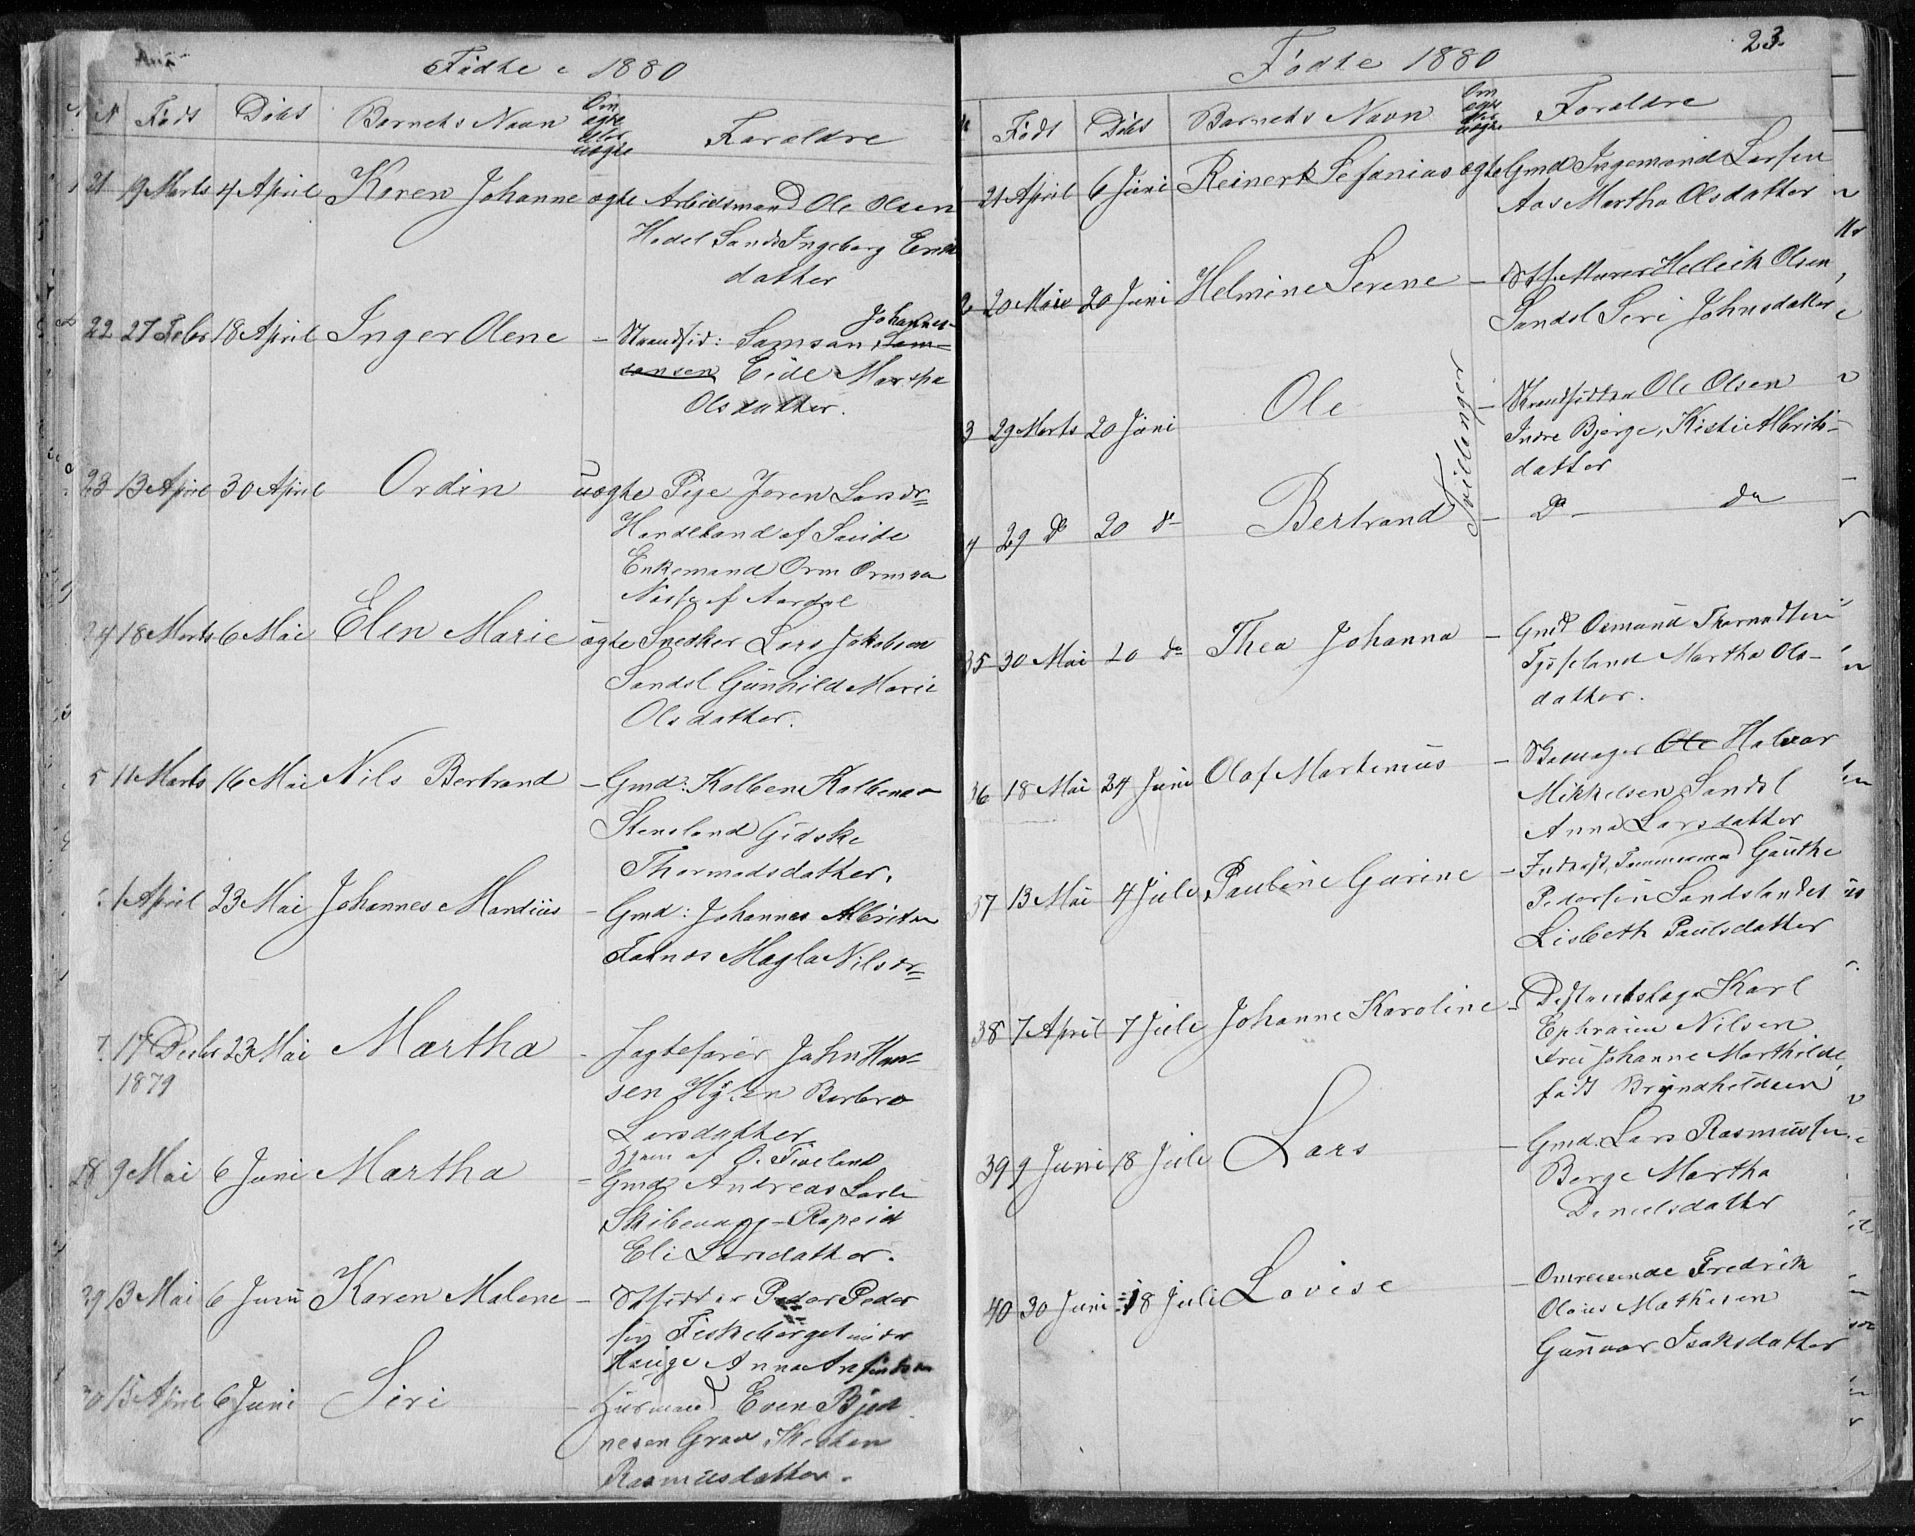 Fødte 1880
N Født Døbt Barnets Navn Om ægte eller uægte Forældre
21 19 Marts 4 April Karen Johanne ægte Arbeidsmand Ole Olsen
Hadel Sand Ingeborg
datter
22 27 Febr 18 April Inger Olene – Strandsid: Samson Johannes-
Sam-
sonsen Eide Martha
Olsdatter.
23 13 April 30 April Ordin uægte Pige Joren Larsdr=
Handeland af Saude
Enkemand Orm Ormsen
af Aardal
24 18 Marts 6 Mai Elen Marie ægte Snedker Lars Jakobsen
Sandsl Gunhild Marie
Olsdatter.
5 11 Marts 16 Mai Nils Bertrand – Gmd: Kolben Kolbensen
Stensland Gidske
Thormodsdatter.
1 April 23 Mai Johannes Mandius – Gmd: Johannes Albritsen
Magla Nilsdr=
7. 17 Decbr 23 Mai Martha - Jagtefører John Han-
1879
sen Hylen Barbro
Larsdatter
Hjem af Ø. Fiveland
28 9 Mai 6 Juni Martha – Gmd Andreas Larse
Skibevaag – Ropeid
Eli Larsdatter.
29 13 Mai 6 Juni Karen Malene – Stfidder Peder Peder
sen
Hauge Anna
30 15 April 6 Juni Siri – Husmand Even Bjør
nesen Grov, Kirsten
Rasmusdatter.
Fødte 1880 23.
Født Døbt Barnets Navn Om ægte eller uægte Forældre
21 April 6 Juni Reinert Sefanias ægte Gmd Ingemand Larsen
Aas Martha Olsdatter
2 20 Mai 20 Juni Helmine Serene – Murer Hellech Olsen
Sandsl Seri Johnsdatter
3 29 Marts 20 Juni Ole Tvillinger – Strandsidder Ole Olsen
Indre Bjerge, Kisti Albrits-
datter
4 29 do 20 do Bertrand – Do – do
35 30 Mai 20 do Thea Johanna – Gmd Osmund Thormodsen
Tysseland Martha Ols-
datter.
36 18 Mai 24 Juni Olaf Martinius – Skomager Ole Halvor
Mikkelsen Sandsl
Anna Larsdatter
37 13 Mai 4 Juli Pauline Gurine – Inderst, Tømmermand Gauthe
Pedersen Sandslandet
Lisbeth Paulsdatter
38 7 April 7 Juli Johanne Karoline – Distriktslæge Karl
Ephraim Nilsen
Fru Johanne Marthilde,
født Bryndheldsen
39 9 Juni 18 Juli Lars – Gmd. Lars Rasmussen
Berge Martha
Danielsdatter
40 30 Juni 18 Juli Lovise – Omreisende Fredrik
Olaus Mathisen
Gunvor Isaksdatter